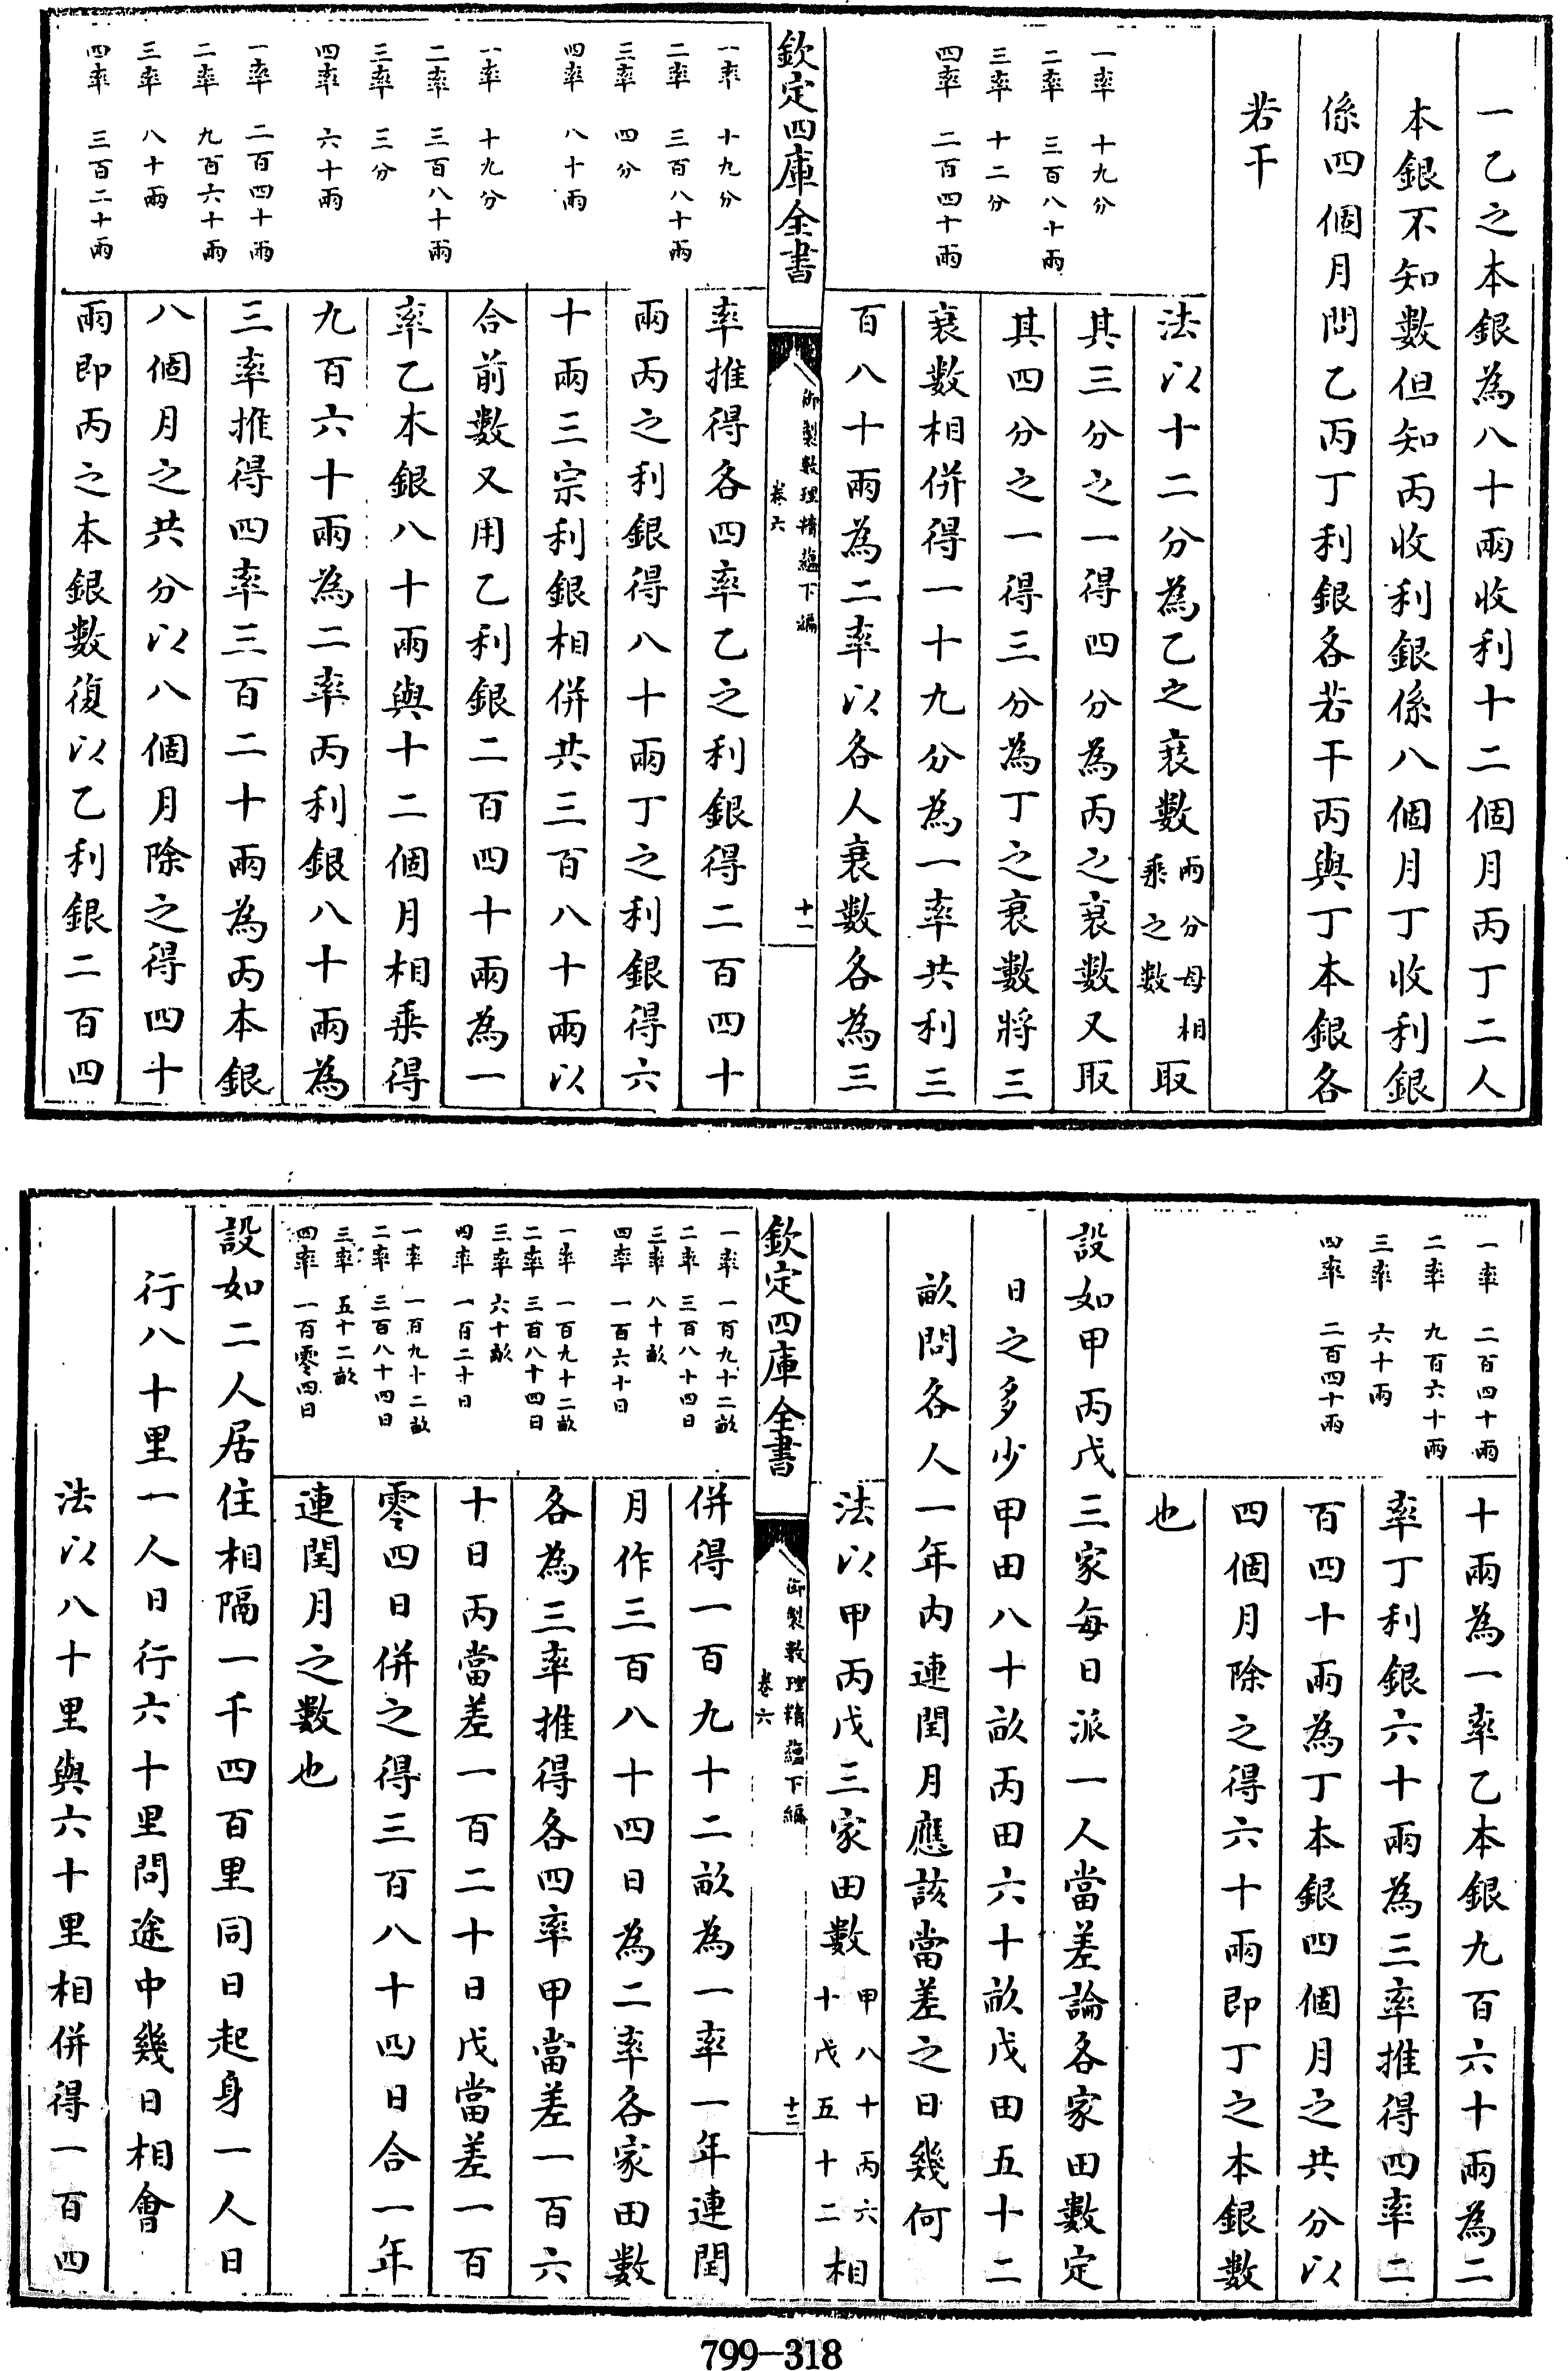 一乙之本銀為八十兩收利十二個月丙丁二人
本銀不知數但知丙收利銀係八個月丁收利銀
係四個月問乙丙丁利銀各若干丙與丁本銀各
若干
一率 十九分
二率 三百八十兩
三率 十二分
四率 二百四十兩
法以十二分為乙之衰數兩分母相乘之數取
其三分之一得四分為丙之衰數又取
其四分之一得三分為丁之衰數將三
衰數相併得一十九分為一率共利三
百八十兩為二率以各人衰數各為三
欽定四庫全書
御製數理精蘊下編
卷六
十一
一率 十九分
二率 三百八十兩
三率 四分
四率 八十兩
一率 十九分
二率 三百八十兩
三率 三分
四率 六十兩
一率 二百四十兩
二率 九百六十兩
三率 八十兩
四率 三百二十兩
率推得各四率乙之利銀得二百四十
兩丙之利銀得八十兩丁之利銀得六
十兩三宗利銀相併共三百八十兩以
合前數又用乙利銀二百四十兩為一
率乙本銀八十兩與十二個月相乘得
九百六十兩為二率丙利銀八十兩為
三率推得四率三百二十兩為丙本銀
八個月之共分以八個月除之得四十
兩即丙之本銀數復以乙利銀二百四
一率 二百四十兩
二率 九百六十兩
三率 六十兩
四率 二百四十兩
十兩為一率乙本銀九百六十兩為二
率丁利銀六十兩為三率推得四率二
百四十兩為丁本銀四個月之共分以
四個月除之得六十兩即丁之本銀數
也
設如甲丙戊三家每日派一人當差論各家田數定
日之多少甲田八十畝丙田六十畝戊田五十二
畝問各人一年內連閏月應該當差之日幾何
法以甲丙戊三家田數甲八十丙六十戊五十二相
欽定四庫全書
御製數理精蘊下編
卷六
十二
一率 一百九十二畝
二率 三百八十四日
三率 八十畝
四率 一百六十日
一率 一百九十二畝
二率 三百八十四日
三率 六十畝
四率 一百二十日
一率 一百九十二畝
二率 三百八十四日
三率 五十二畝
四率 一百零四日
併得一百九十二畝為一率一年連閏
月作三百八十四日為二率各家田數
各為三率推得各四率甲當差一百六
十日丙當差一百二十日戊當差一百
零四日併之得三百八十四日合一年
連閏月之數也
設如二人居住相隔一千四百里同日起身一人日
行八十里一人日行六十里問途中幾日相會
法以八十里與六十里相併得一百四
799-318